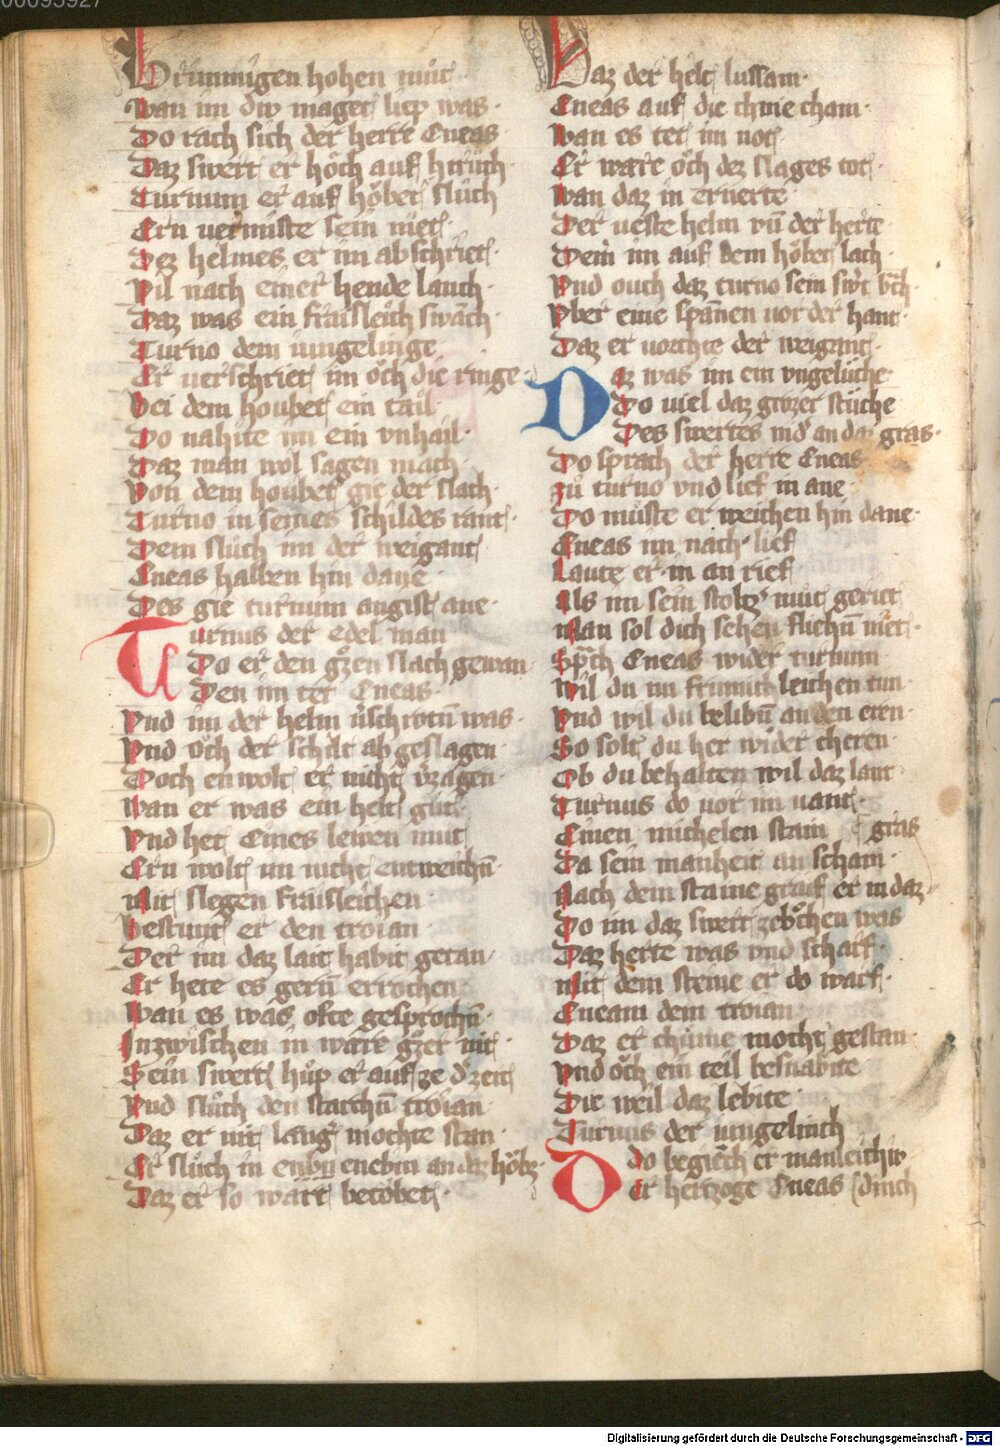 00095927
Grimmigen hohen mut
Wan im diw maget liep was
Do rach sich der herre Eneas
Daz swert er hoch auf hueb
Turnum er auf höbet slüch
Ern vermiste sein niet
Dez helmes er im abschriet
Vil nach einer hende lanch
Daz was ein fraisleich swanch
Turno dem iungelinge
Er verschriet im öch die ringe
Bei dem houbet ein tail
Do nahite im ein vnhail
Daz man wol sagen mach
Von dem houbet gie der slach
Turno in seines schildes rant
Dem slüch im der weigant
Eneas halben hin dane
Des gie turnum angist ane
Turnus der edel man
Do er den gzen slach gewan
Den im tet Eneas
Vnd im der helm v̄schrotū was
Vnd öch der schilt ab geslagen
Doch enwolt er nicht v̄zagen
Wan er was ein helt güt
Vnd het Eines lewen mut
Ern wolt im nicht entweichn̄
Mit slegen fraisleichen
Bestunt er den troian
Der im daz lait habit getan
Er hete es gern̄ errochen
Wan es was ofte gesprochn̄
Inzwischen in ware gzer nit
Sein swert hüp er auf ze d' zeit
Vnd slüch den starchn̄ troian
Daz er nit lang mochte stan
Er slüch in enbn enebin an daz höbz
Daz er so wart betöbet
Daz der helt lussam
Eneas auf die chnie cham
Wan es tet im not
Er ware öch dez slages tot
Wan daz in ernerte
Der ueste helm vn̄ der herte
Dem im auf dem höbet lach
Vnd ouch daz turno sein swt bch
Vber eine spannen vor der hant
Daz er vorchte der weigant
Daz was im ein vngelüche
Do viel daz grozer stüche
Des swertes nid' an daz gras
Do sprach der herre Eneas
Zü turno vnd lief in ane
Do müste er weichen hin dane
Eneas im nach lief
Laute er in an rief
Als im sein stoltz' mut geriet
Man sol dich sehen fliehn̄ niet
Sp̄ch Eneas wider turnum
Wil du im frumich leichen tun
Vnd wil du belibn̄ an den eren
So solt du her wider cheren
Ob du behalten wil daz lant
Turnus do vor im vant
Einen michelen stain
Da sein manheit an scham
Nach dem staine graif er in daz gras
Do im daz swert zeböchen was
Daz herte was vnd scharf
Mit dem steine er do warf
Eneam dem troian
Daz er chüme mocht gestan
Vnd öch ein teil besnabite
Die weil daz lebite
Turnus der iungelinch
Do begiech er manleichiw dinch
Der hertzoge Eneas
Digitalisierung gefördert durch die Deutsche Forschungsgemeinschaft - DFG